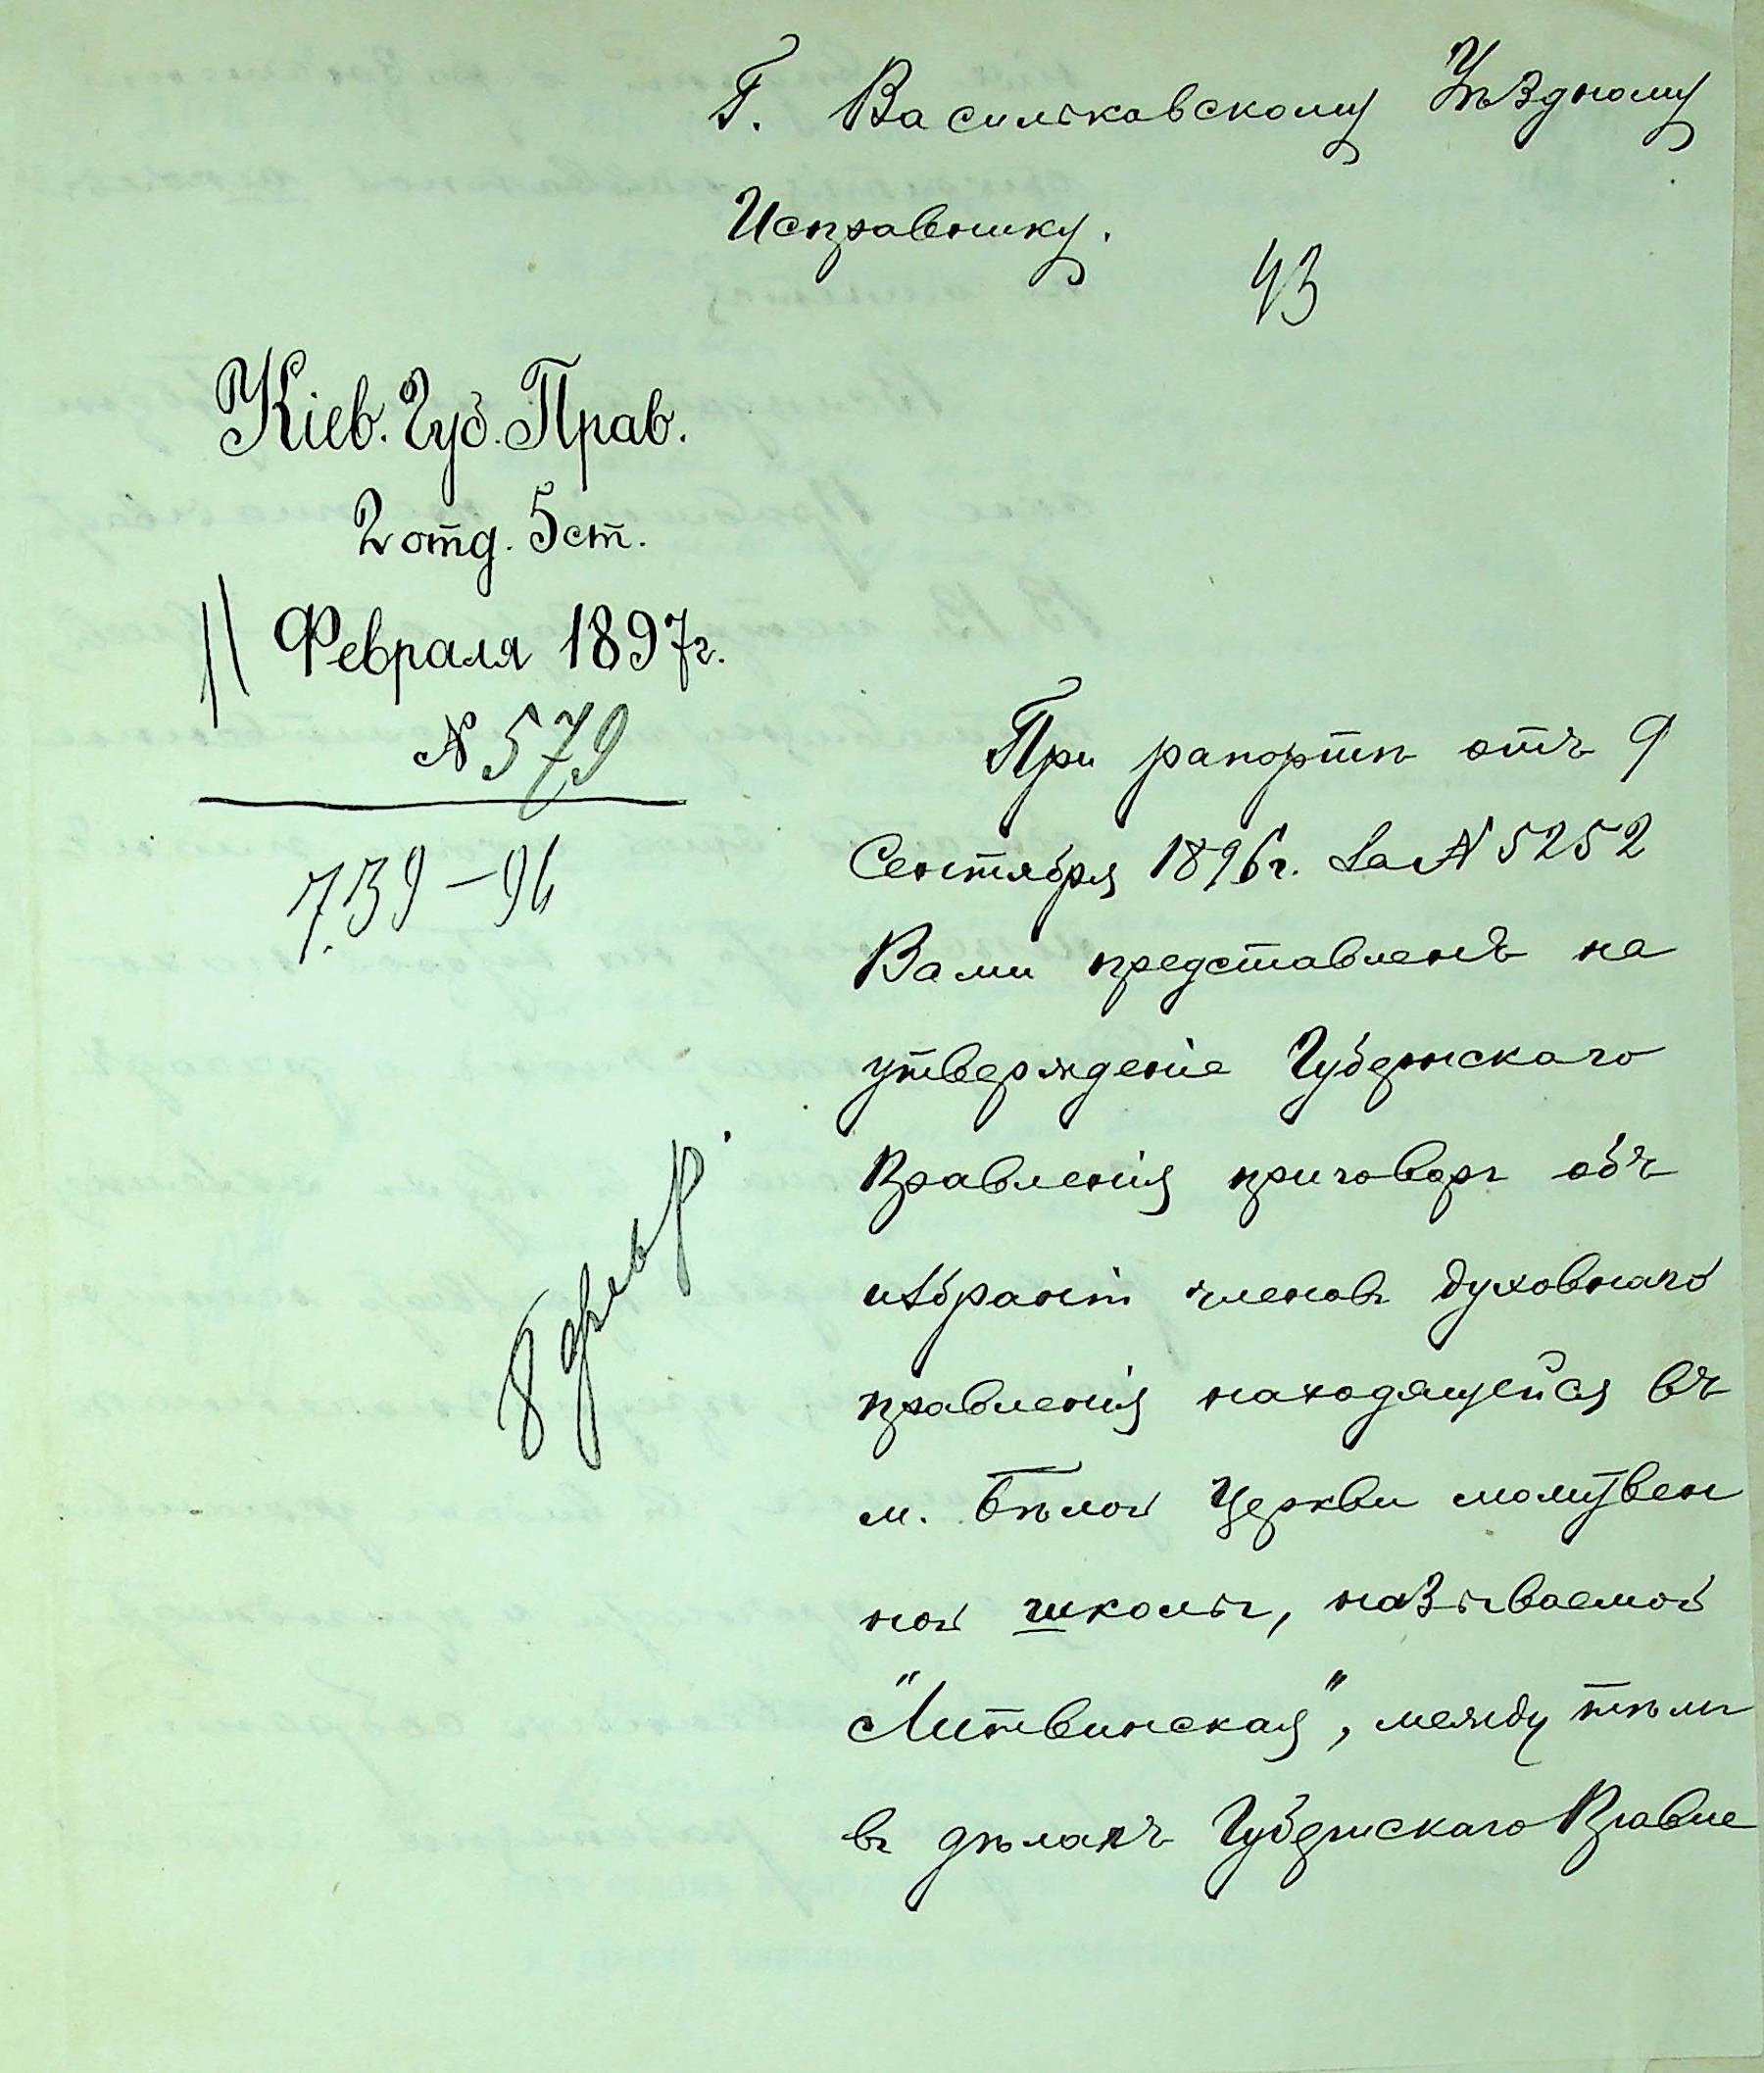 Г. Васильковскому Уѣздному
Исправнику.
43
Кіев. Губ. Прав.
2 отд. 5 ст.
11 Февраля 1897 г.
№ 579
739-96
8 февр.
При рапортѣ отъ 9
Сентября 1896 г. за № 5252
Вами представленъ на
утвержденіе Губернскаго
Правленія приговоръ объ
избраніи членовъ духовнаго
правленія находящейся въ
м. Бѣлой Церкви молитвен
ной школы, называемой
"Литвинская", между тѣмъ
въ дѣлахъ Губернскаго Правле